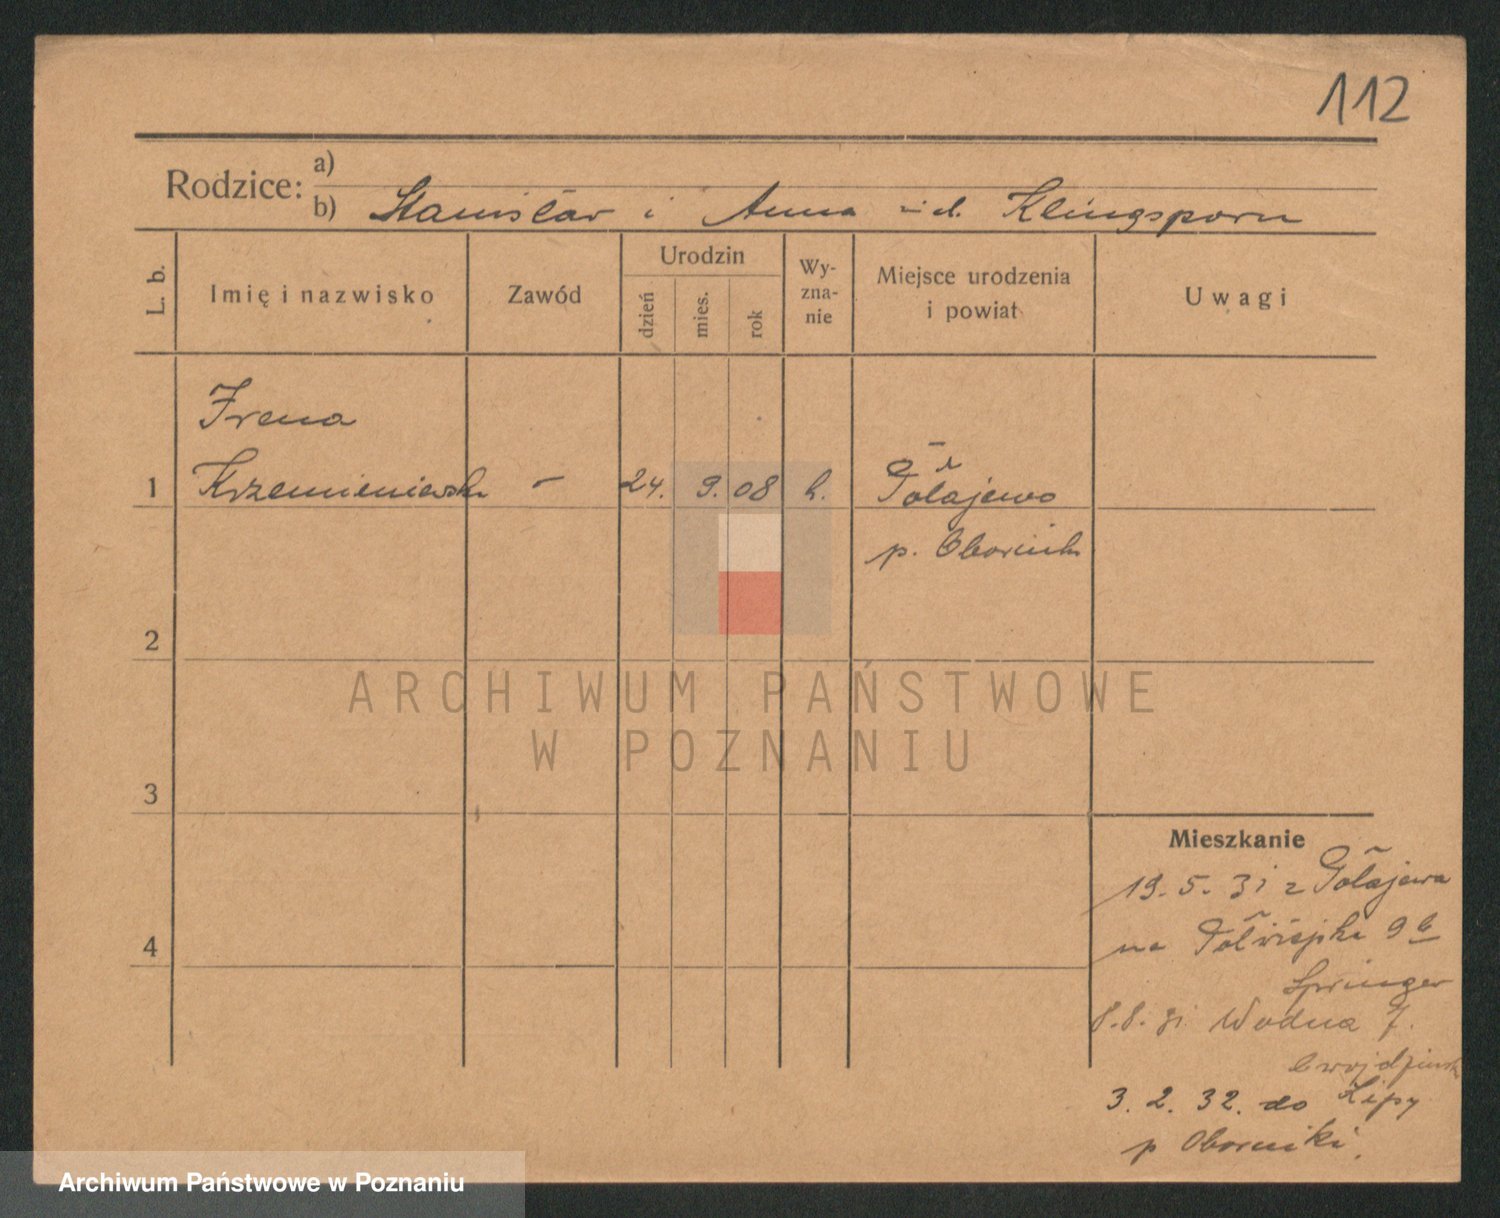 112
Rodzice: a)
b) Stanisław i Anna z d. Klingsporn
L. b.
Imię i nazwisko
Zawód
Urodzin
dzień
mies.
rok
Wy-
zna-
nie
Miejsce urodzenia
i powiat
Uwagi
Irena
1 Krzemieniewska – 24. 9. 08 k. Połajewo
p. Oborniki
2
3
4
ARCHIWUM PAŃSTWOWE
W POZNANIU
Mieszkanie
19. 5. 31 z Połajewa
na Półwiejska 9b
Springer
8.8.31. Wodna 7.
3. 2. 32. do Lipy
p Oborniki.
Archiwum Państwowe w Poznaniu